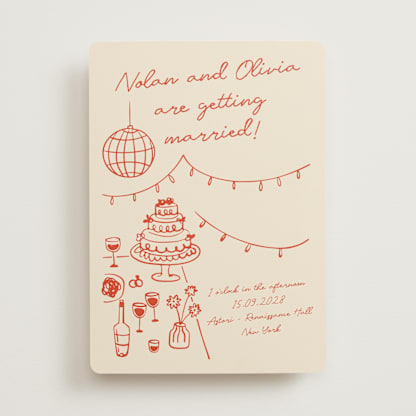 Nolan and Olivia
are getting
married!
1 o'clock in the afternoon
15.09.2028
Astori - Renaissance Hall
New York